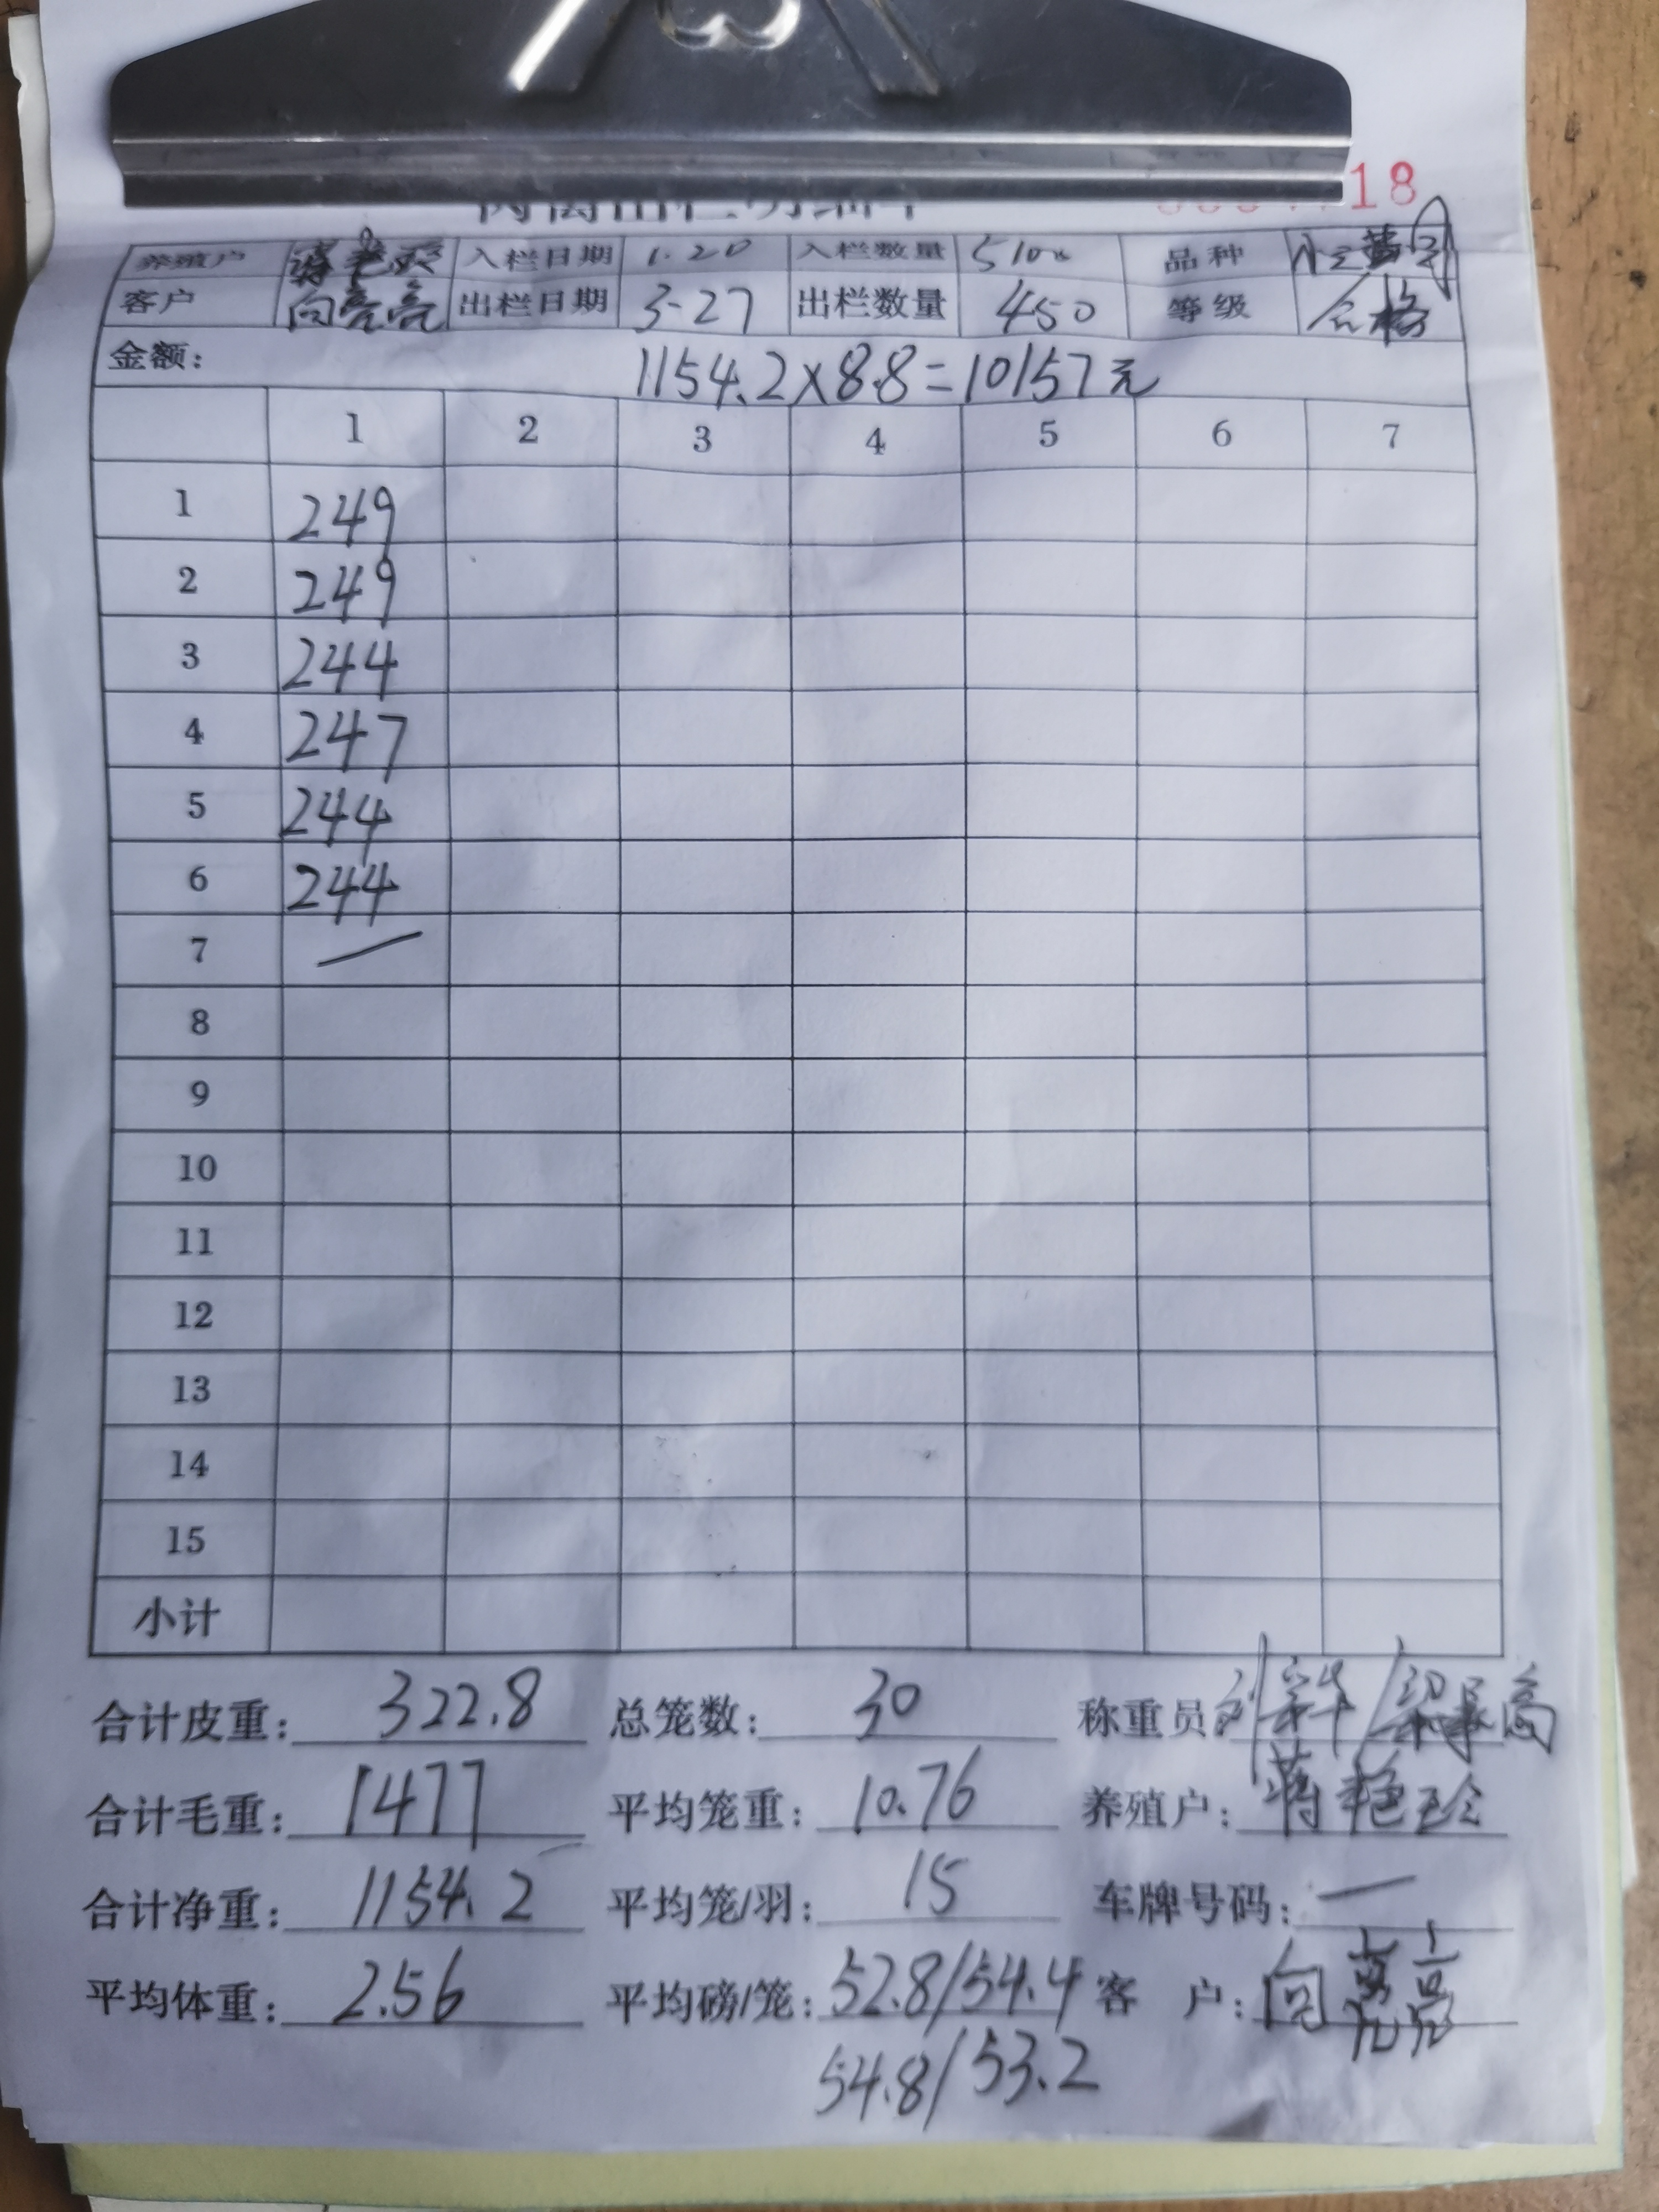 肉禽出栏明细单
18
养殖户 蒋艳珍 入栏日期 1.20 入栏数量 5100 品种
客户 向亮亮 出栏日期 3-27 出栏数量 450 等级 合格
金额: 1154.2×8.8=10157元
1 2 3 4 5 6 7
1 249
2 249
3 244
4 247
5 244
6 244
7 —
8
9
10
11
12
13
14
15
小计
合计皮重: 322.8 总笼数: 30 称重员:
合计毛重: 1477 平均笼重: 10.76 养殖户: 蒋艳珍
合计净重: 1154.2 平均笼/羽: 15 车牌号码: —
平均体重: 2.56 平均磅/笼: 52.8/54.4 客 户: 向亮亮
54.8/53.2